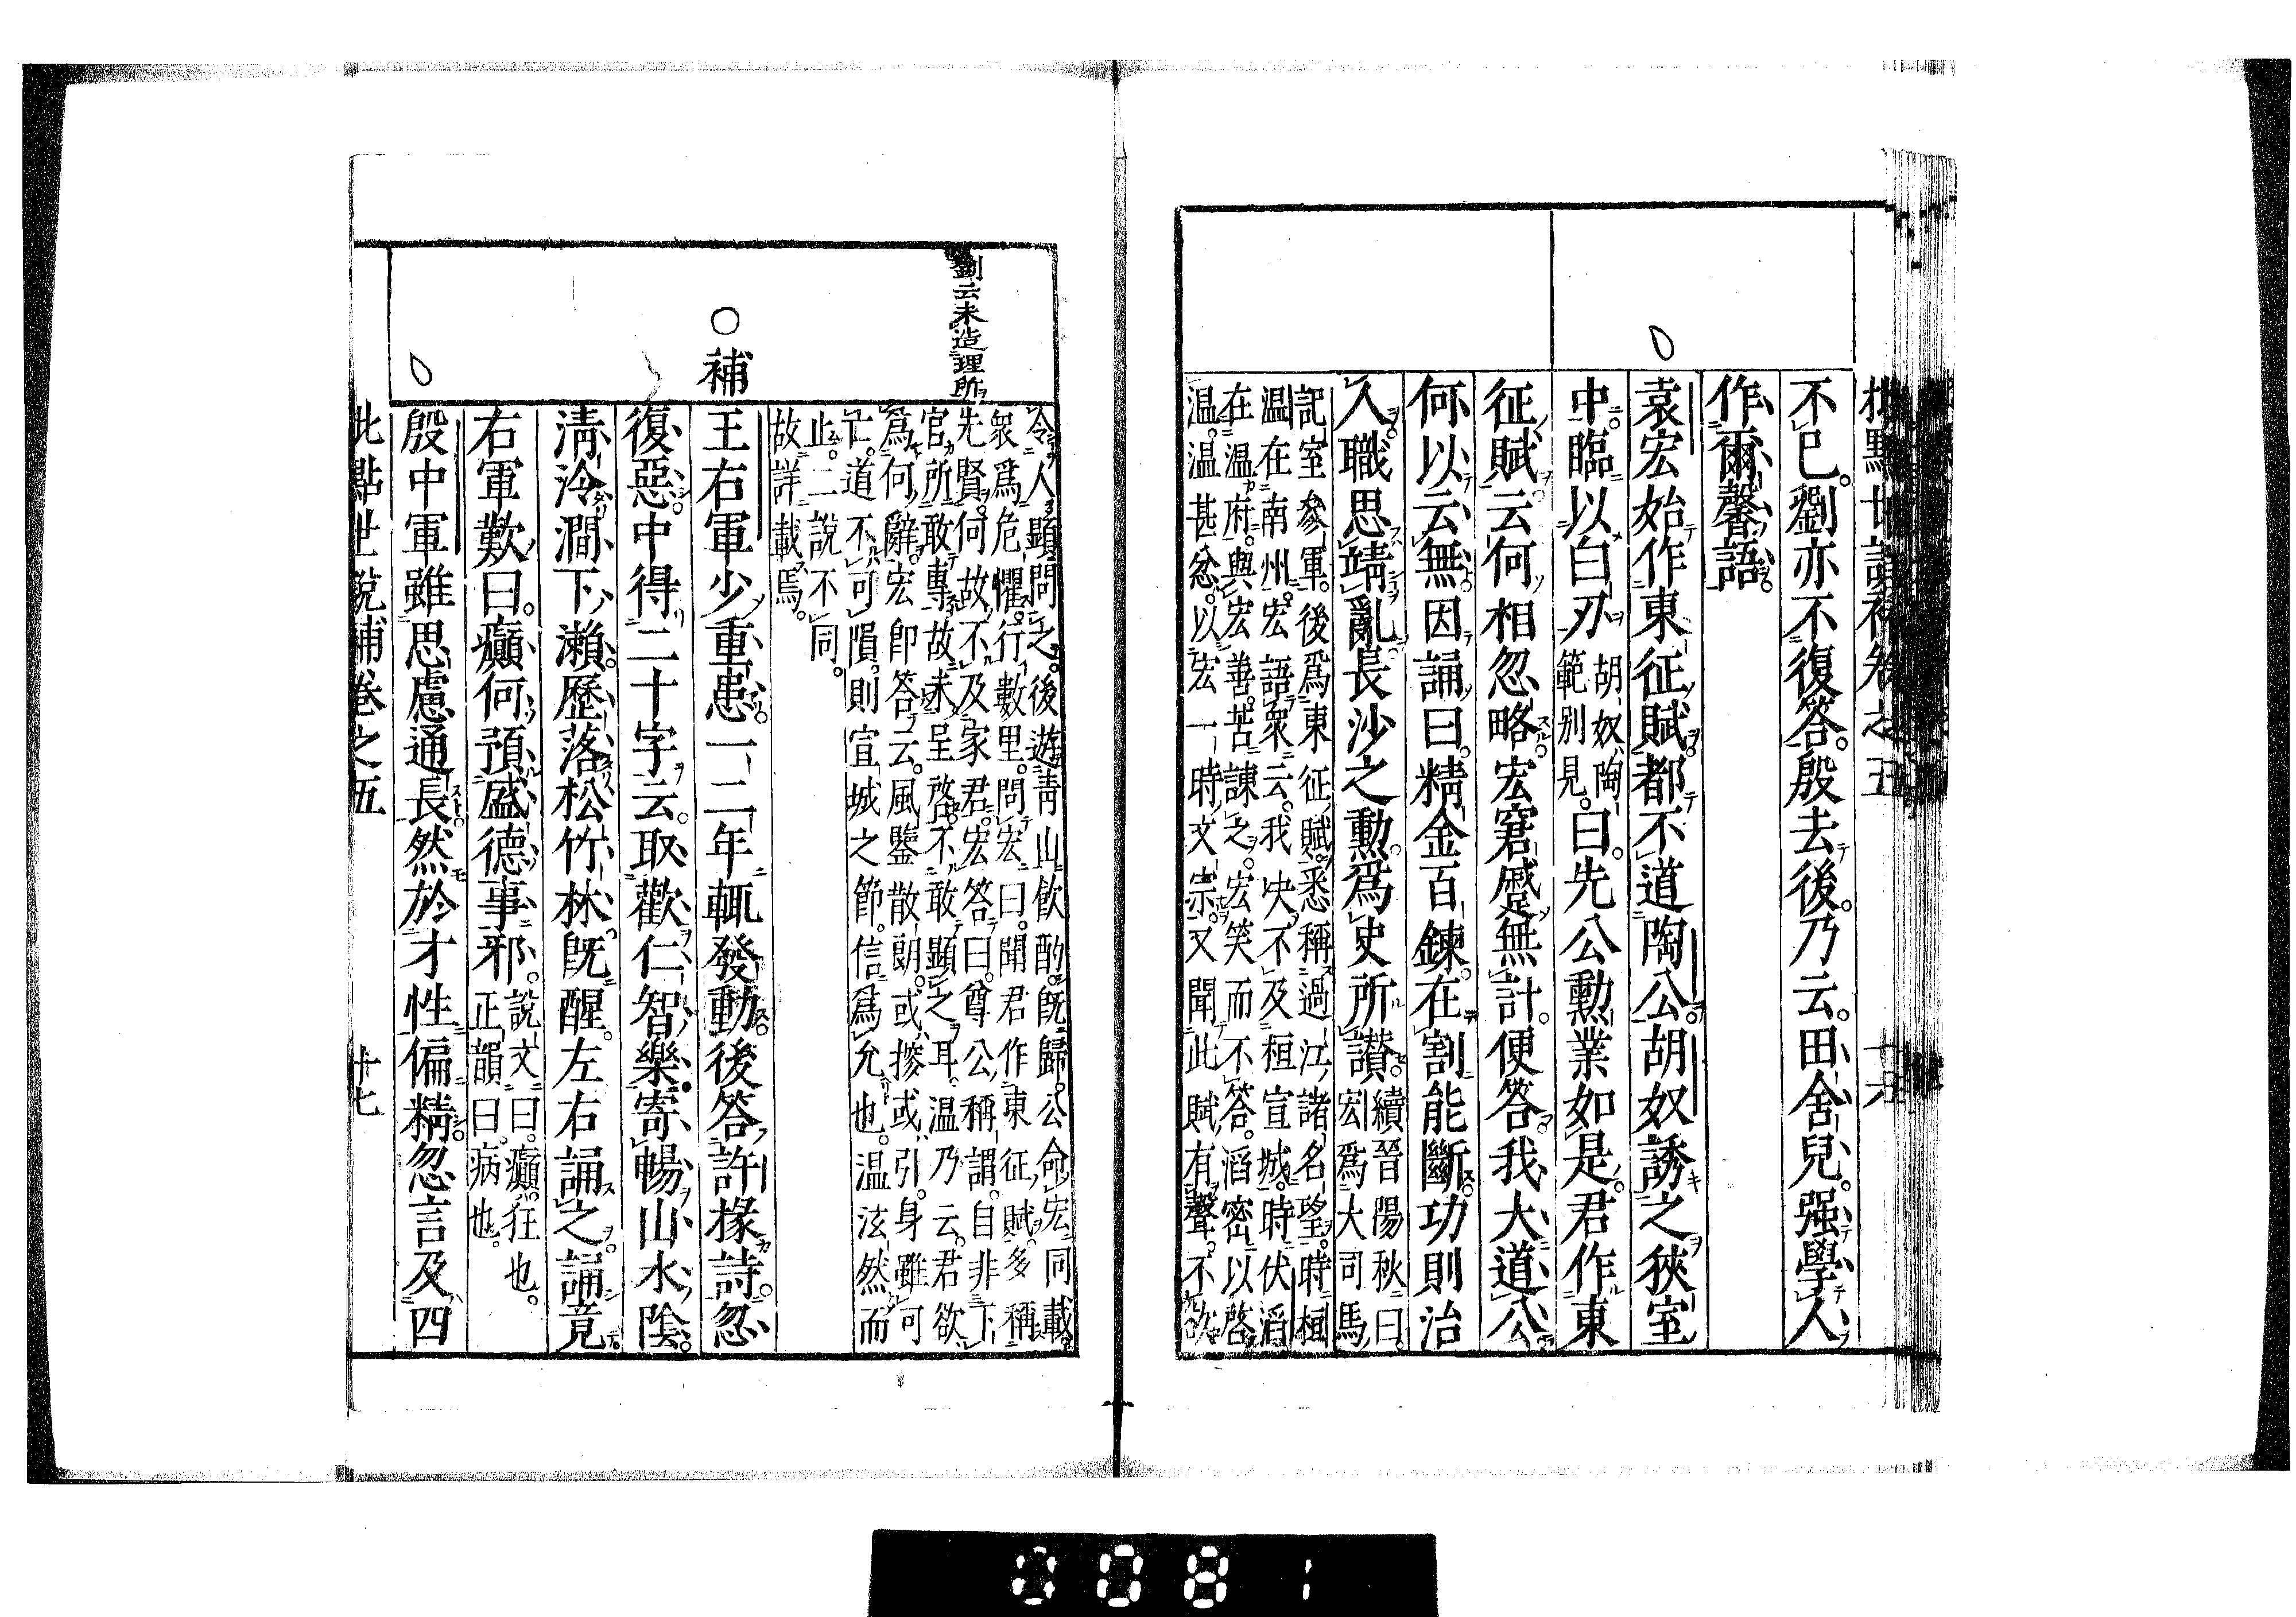 不已。劉亦不復答。殷去後。乃云。田舍兒。强學人
作爾馨語。
袁宏始作東征賦。都不道陶公。胡奴誘之狹室
中。臨以白刃
胡奴、陶
範别見。
曰。先公勲業如是。君作東
征賦。云何相忽略。宏窘蹙無計。便答我大道公。
何以云無。因誦曰。精金百鍊。在割能斷。功則治
人。職思靖亂。長沙之勲。爲史所讃。
續晉陽秋曰。
宏爲大司馬
記室參軍。後爲東征賦。悉稱過江諸名望。時桓
温在南州。宏語衆云。我决不及桓宣城。時伏滔
在温府。與宏善。苦諫之。宏笑而不答。滔密以啓
温。温甚忿。以宏一時文宗。又聞此賦有聲。不欲
令人顯問之。後遊青山飲酌。旣歸。公命宏同載。
衆爲危懼。行數里。問宏曰。聞君作東征賦。多稱
先賢。何故不及家君。宏答曰。尊公稱謂。自非下
官所敢專。故未呈啓。不敢顯之耳。温乃云。君欲
爲何辭。宏卽答云。風鑒散朗。或搜或引。身雖可
亡。道不可隕。則宣城之節。信爲允也。温泫然而
止。二說不同。
故詳載焉。
劉云未造理所
○補
王右軍少重患。一二年輒發動。後答許掾詩。忽
復惡中得二十字云。取歡仁智樂。寄暢山水陰。
淸泠澗下瀨。歷落松竹林。旣醒。左右誦之。誦竟
右軍歎曰。癲何預盛德事邪。
說文曰。癲。狂也。
正韻曰。病也。
殷中軍雖思慮通長。然於才性偏精。忽言及四
世說補卷之五
十七
0081